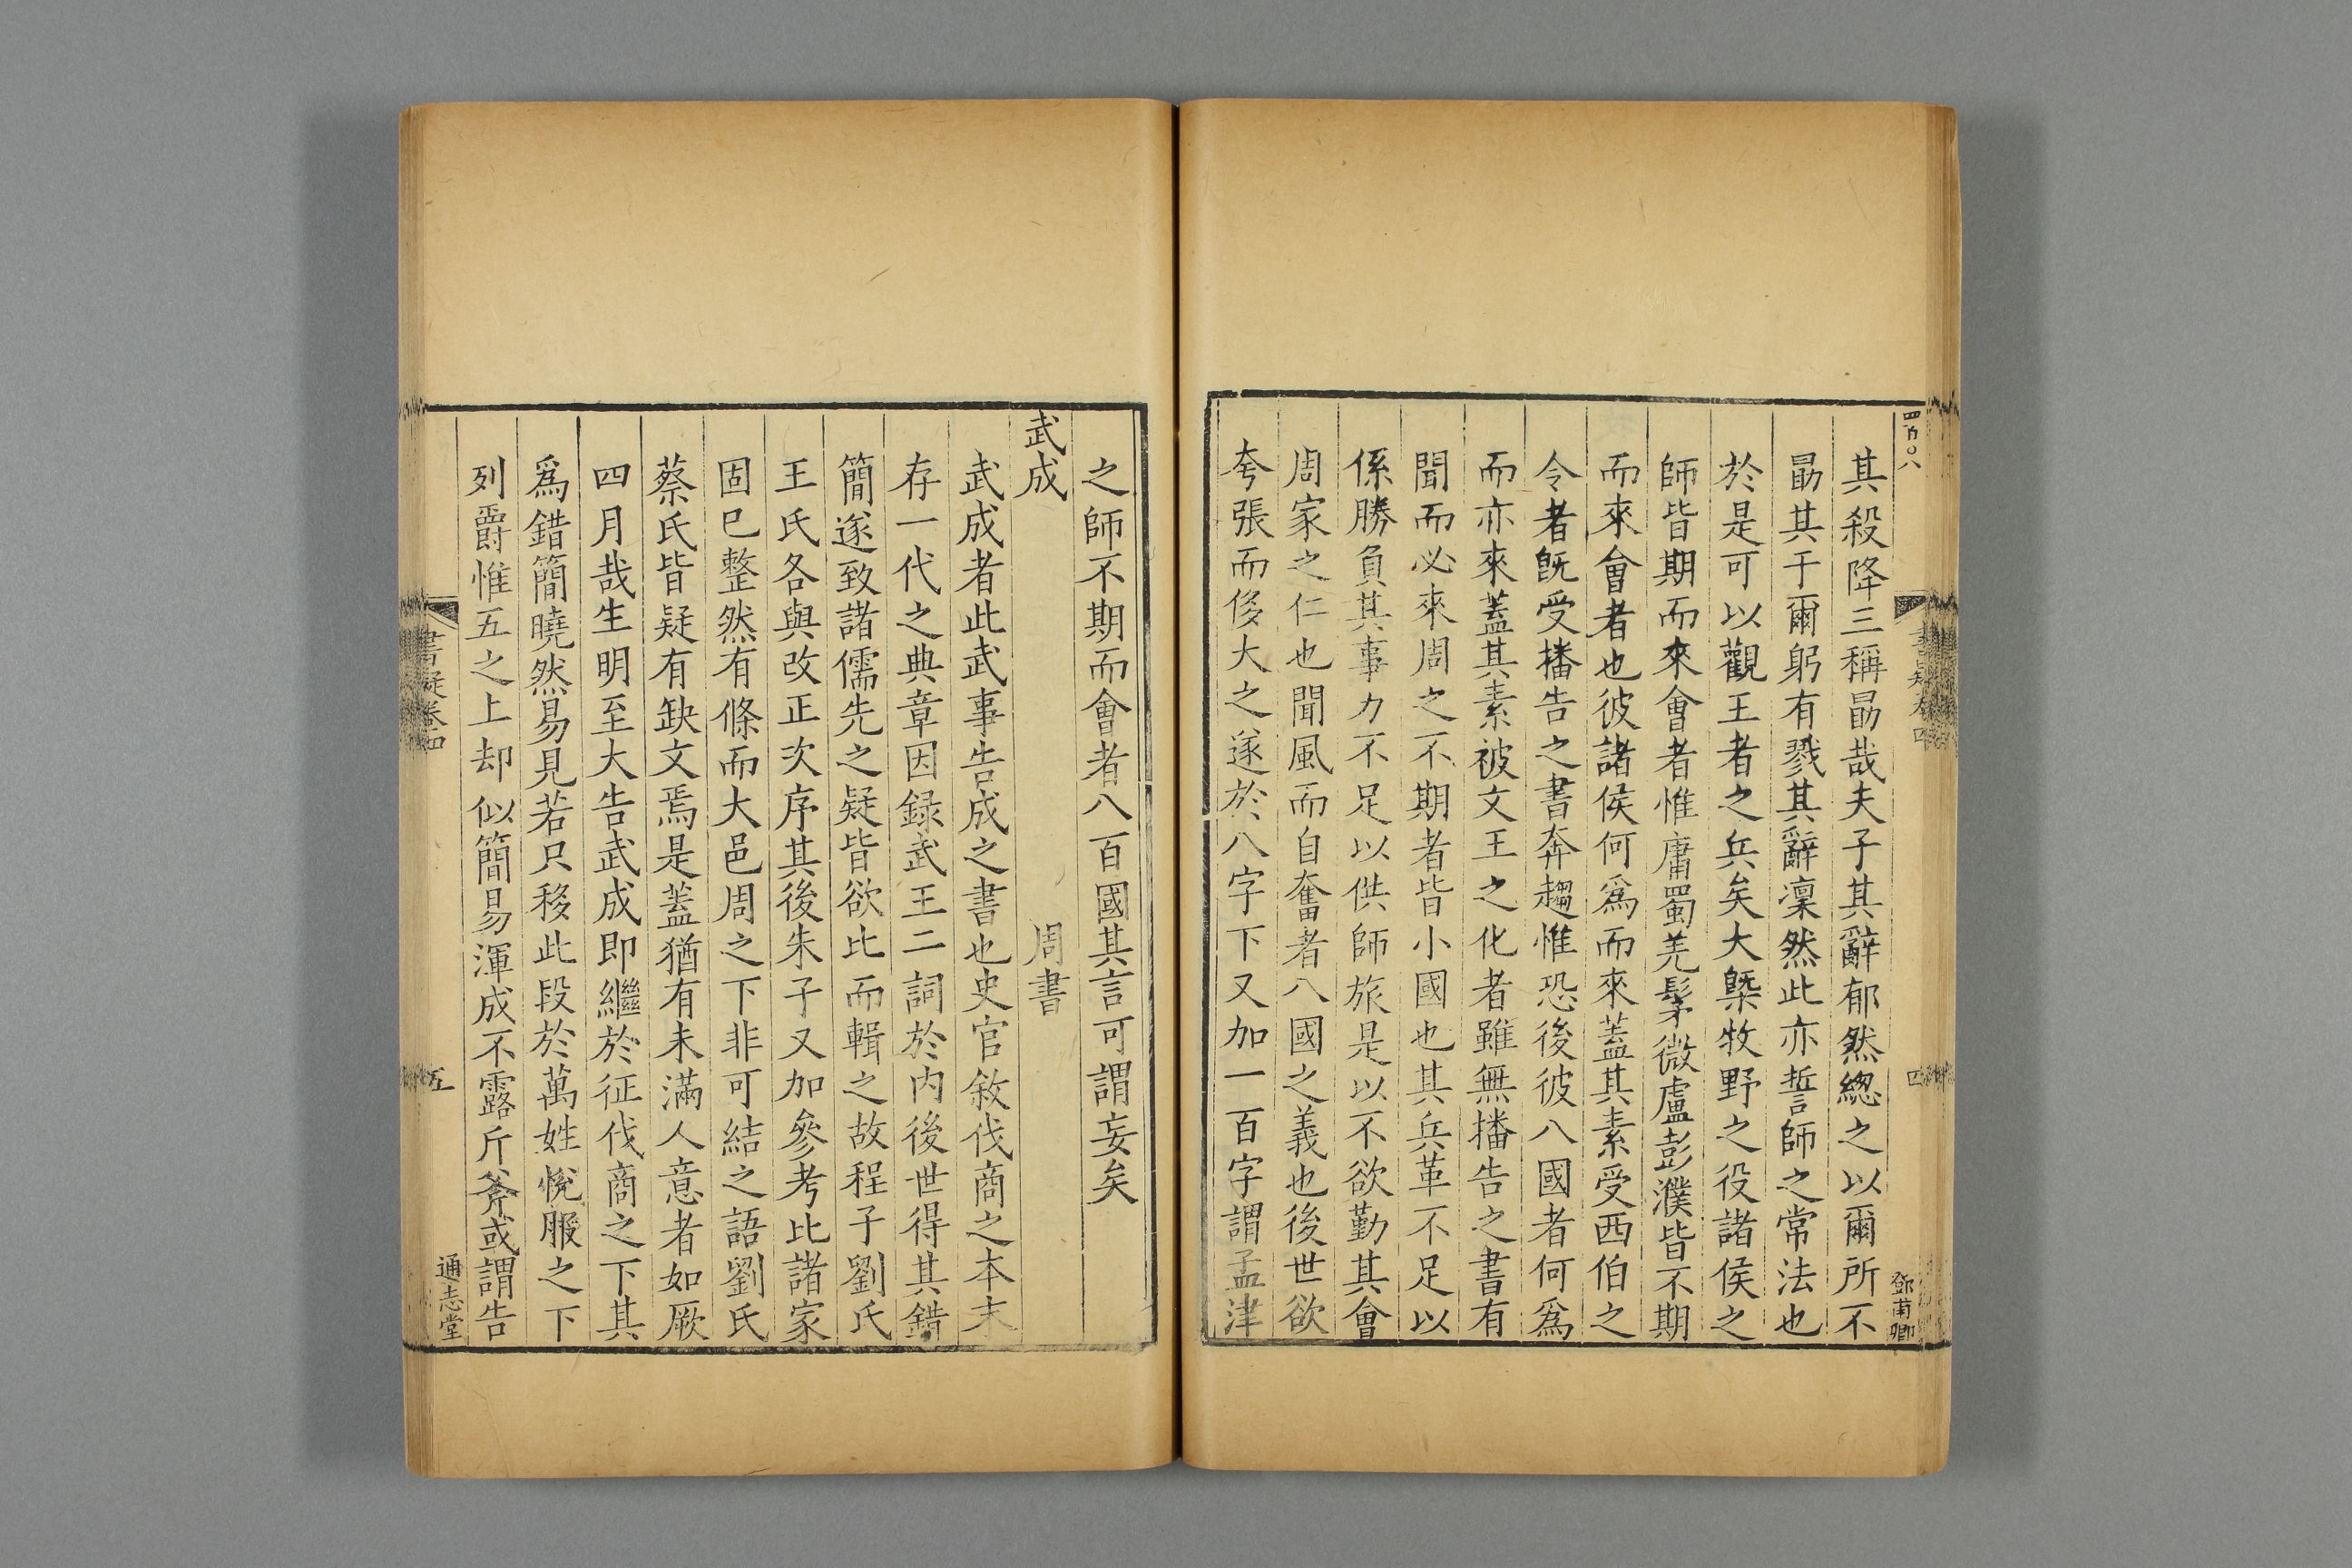 四百〇八
書疑卷四
四
鄧甫卿
其殺降三稱勗哉夫子其辭郁然緫之以爾所不
勗其于爾躬有戮其辭凜然此亦誓師之常法也
於是可以觀王者之兵矣大槩牧野之役諸侯之
師皆期而來會者惟庸蜀羌髳微盧彭濮皆不期
而來會者也彼諸侯何爲而來蓋其素受西伯之
令者旣受播告之書奔趨惟恐後彼八國者何爲
而亦來蓋其素被文王之化者雖無播告之書有
聞而必來周之不期者皆小國也其兵革不足以
係勝負其事力不足以供師旅是以不欲勤其會
周家之仁也聞風而自奮者八國之義也後世欲
夸張而侈大之遂於八字下又加一百字謂孟津
之師不期而會者八百國其言可謂妄矣
武成　周書
武成者此武事告成之書也史官敘伐商之本末
存一代之典章因錄武王二詞於內後世得其錯
簡遂致諸儒先之疑皆欲比而輯之故程子劉氏
王氏各與改正次序其後朱子又加參考比諸家
固已整然有條而大邑周之下非可結之語劉氏
蔡氏皆疑有缺文焉是蓋猶有未滿人意者如厥
四月哉生明至大告武成即繼於征伐商之下其
爲錯簡曉然易見若只移此段於萬姓悅服之下
列爵惟五之上却似簡易渾成不露斤斧或謂告
書疑卷四
五
通志堂